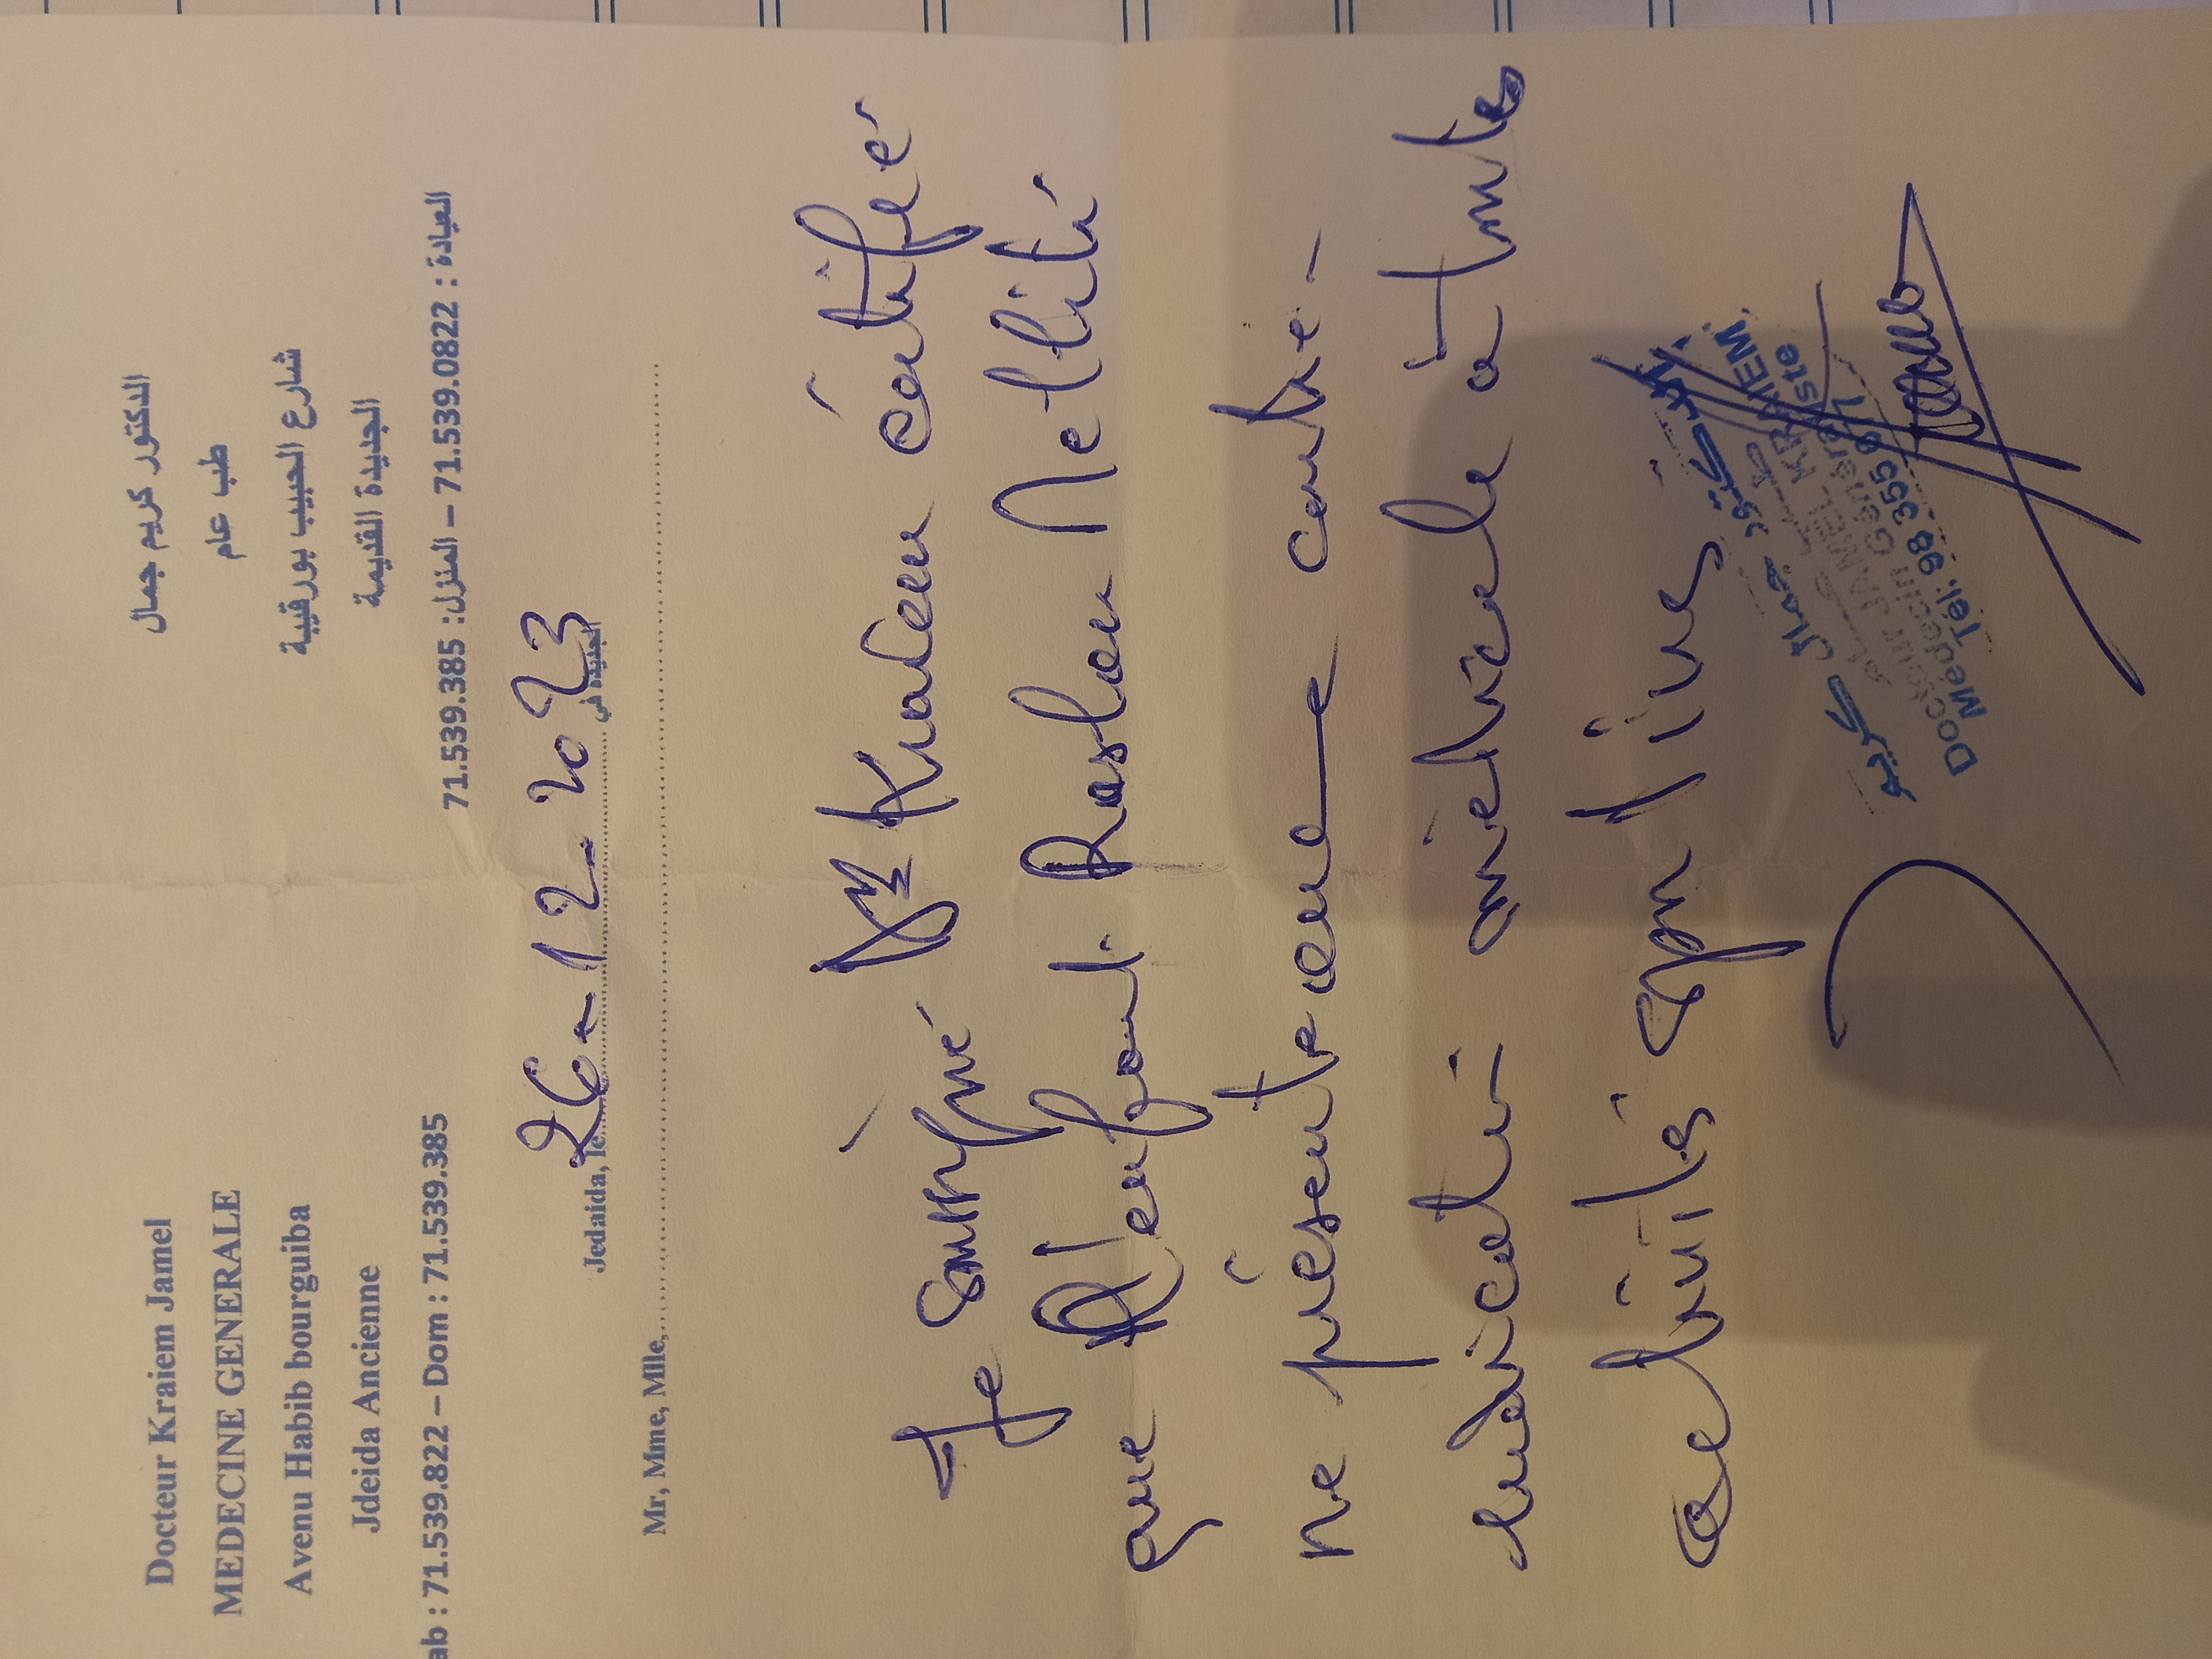 Docteur Kraiem Jamel
MEDECINE GENERALE
Avenu Habib bourguiba
Jdeida Ancienne
ab : 71.539.822 – Dom : 71.539.385
الدكتور كريم جمال
طب عام
شارع الحبيب بورقيبة
الجديدة القديمة
العيادة : 71.539.0822 – المنزل: 71.539.385
Jedaida, le 26-12-2023 الجديدة في
Mr, Mme, Mlle,
Je soussigné Dr Kraiem certifie
que l'enfant Raslen Meliti
ne présente aucune contre-
indication médicale à toutes
activités sportives
الدكتور جمال كريم
Docteur JAMEL KRAIEM
Médecin Généraliste
Tel: 98 355 671